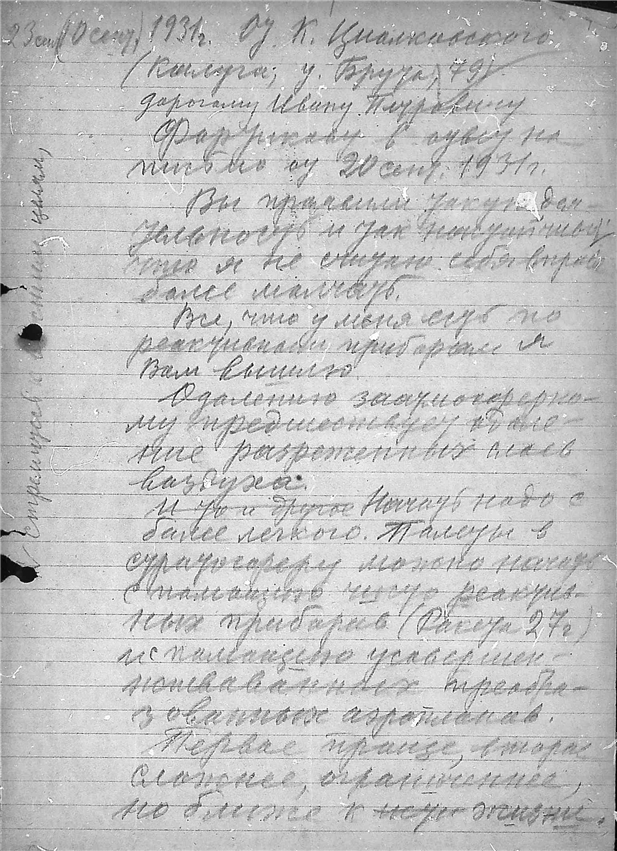 23 сен (Осень) 1931г. От К. Циолковского
(Калуга, у. Брута, 79)
дорогому Ивану Петровичу
Фортикову в ответ на
письмо от 20 сент. 1931г.
Вы проявили такую дея-
тельность и так
что я не считаю себя вправе
более молчать.
Все, что у меня есть по
реакционным приборам я
Вам вышлю.
Одалению заатмосферно-
му предшествует одале-
ние разреженных слоев
воздуха.
И то и другое Начать надо с
более легкого. Полеты в
стратосферу можно начать
с помощию чисто реактив-
ных приборов (Ракета 27г)
и с помощию усовершен-
преобра-
зованных аэропланов.
Первое проще, второе
сложнее, ограниченнее,
но ближе к жизни.
Стремитесь к целям,